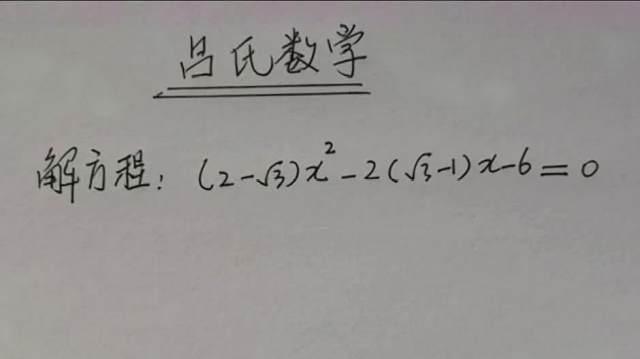 吕氏数学
解方程：(2-√3)x²-2(√3-1)x-6=0